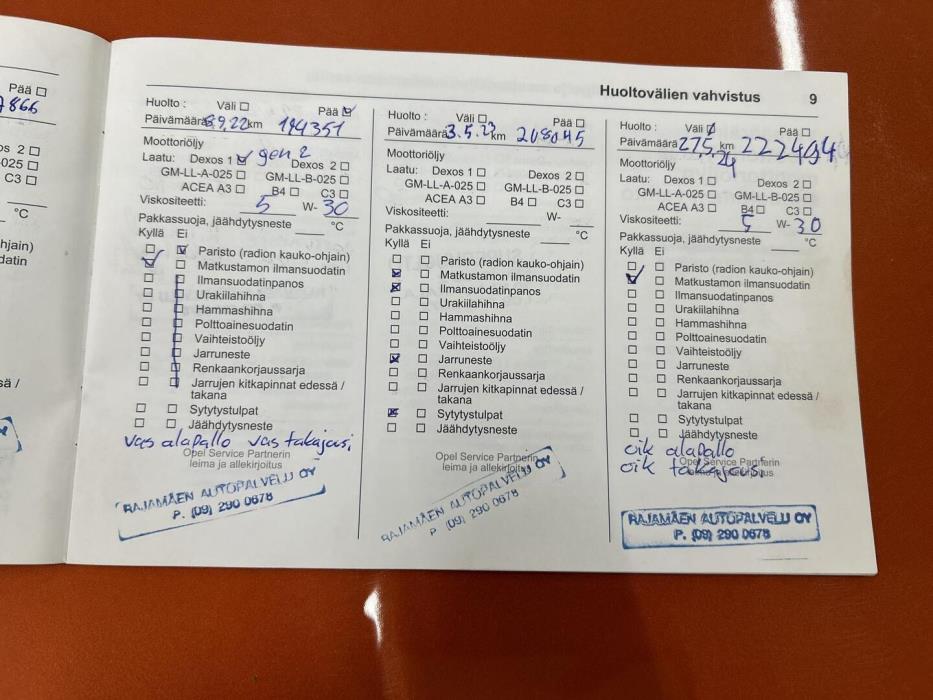 Pää ☐
7866
os 2 ☐
-025 ☐
C3 ☐
°C
hjain)
datin
sä /
Huoltovälien vahvistus 9
Huolto : Väli ☐ Pää ☑
Päivämäärä 8.9.22 km 194351
Moottoriöljy
Laatu: Dexos 1 ☑ gen 2 Dexos 2 ☐
GM-LL-A-025 ☐ GM-LL-B-025 ☐
ACEA A3 ☐ B4 ☐ C3 ☐
Viskositeetti: 5 W- 30
Pakkassuoja, jäähdytysneste ____ °C
Kyllä Ei
☐ ☑ Paristo (radion kauko-ohjain)
☑ ☐ Matkustamon ilmansuodatin
☐ ☐ Ilmansuodatinpanos
☐ ☐ Urakiilahihna
☐ ☐ Hammashihna
☐ ☐ Polttoainesuodatin
☐ ☐ Vaihteistoöljy
☐ ☐ Jarruneste
☐ ☐ Renkaankorjaussarja
☐ ☐ Jarrujen kitkapinnat edessä /
takana
☐ ☐ Sytytystulpat
☐ ☐ Jäähdytysneste
vas alapallo vas takajousi
Opel Service Partnerin
leima ja allekirjoitus
RAJAMÄEN AUTOPALVELU OY
P. (09) 290 0678
Huolto : Väli ☐ Pää ☐
Päivämäärä 3.5.23 km 208045
Moottoriöljy
Laatu: Dexos 1 ☐ Dexos 2 ☐
GM-LL-A-025 ☐ GM-LL-B-025 ☐
ACEA A3 ☐ B4 ☐ C3 ☐
Viskositeetti: ____ W- ____
Pakkassuoja, jäähdytysneste ____ °C
Kyllä Ei
☐ ☐ Paristo (radion kauko-ohjain)
☒ ☐ Matkustamon ilmansuodatin
☒ ☐ Ilmansuodatinpanos
☐ ☐ Urakiilahihna
☐ ☐ Hammashihna
☐ ☐ Polttoainesuodatin
☐ ☐ Vaihteistoöljy
☒ ☐ Jarruneste
☐ ☐ Renkaankorjaussarja
☐ ☐ Jarrujen kitkapinnat edessä /
takana
☒ ☐ Sytytystulpat
☐ ☐ Jäähdytysneste
Opel Service Partnerin
leima ja allekirjoitus
RAJAMÄEN AUTOPALVELU OY
P. (09) 290 0678
Huolto : Väli ☑ Pää ☐
Päivämäärä 27.5.24 km 222494
Moottoriöljy
Laatu: Dexos 1 ☐ Dexos 2 ☐
GM-LL-A-025 ☐ GM-LL-B-025 ☐
ACEA A3 ☐ B4 ☐ C3 ☐
Viskositeetti: 5 W- 30
Pakkassuoja, jäähdytysneste ____ °C
Kyllä Ei
☐ ☐ Paristo (radion kauko-ohjain)
☑ ☐ Matkustamon ilmansuodatin
☐ ☐ Ilmansuodatinpanos
☐ ☐ Urakiilahihna
☐ ☐ Hammashihna
☐ ☐ Polttoainesuodatin
☐ ☐ Vaihteistoöljy
☐ ☐ Jarruneste
☐ ☐ Renkaankorjaussarja
☐ ☐ Jarrujen kitkapinnat edessä /
takana
☐ ☐ Sytytystulpat
☐ ☐ Jäähdytysneste
oik alapallo
oik takajousi
Opel Service Partnerin
RAJAMÄEN AUTOPALVELU OY
P. (09) 290 0678